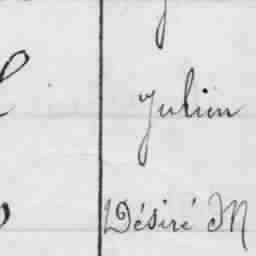 Julien
Désiré M